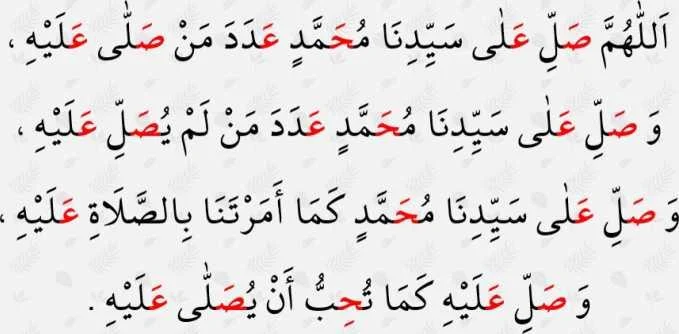 اَللّٰهُمَّ صَلِّ عَلٰى سَيِّدِنَا مُحَمَّدٍ عَدَدَ مَنْ صَلّٰى عَلَيْهِ ،
وَ صَلِّ عَلٰى سَيِّدِنَا مُحَمَّدٍ عَدَدَ مَنْ لَمْ يُصَلِّ عَلَيْهِ ،
وَ صَلِّ عَلٰى سَيِّدِنَا مُحَمَّدٍ كَمَا أَمَرْتَنَا بِالصَّلَاةِ عَلَيْهِ ،
وَ صَلِّ عَلَيْهِ كَمَا تُحِبُّ أَنْ يُصَلّٰى عَلَيْهِ .